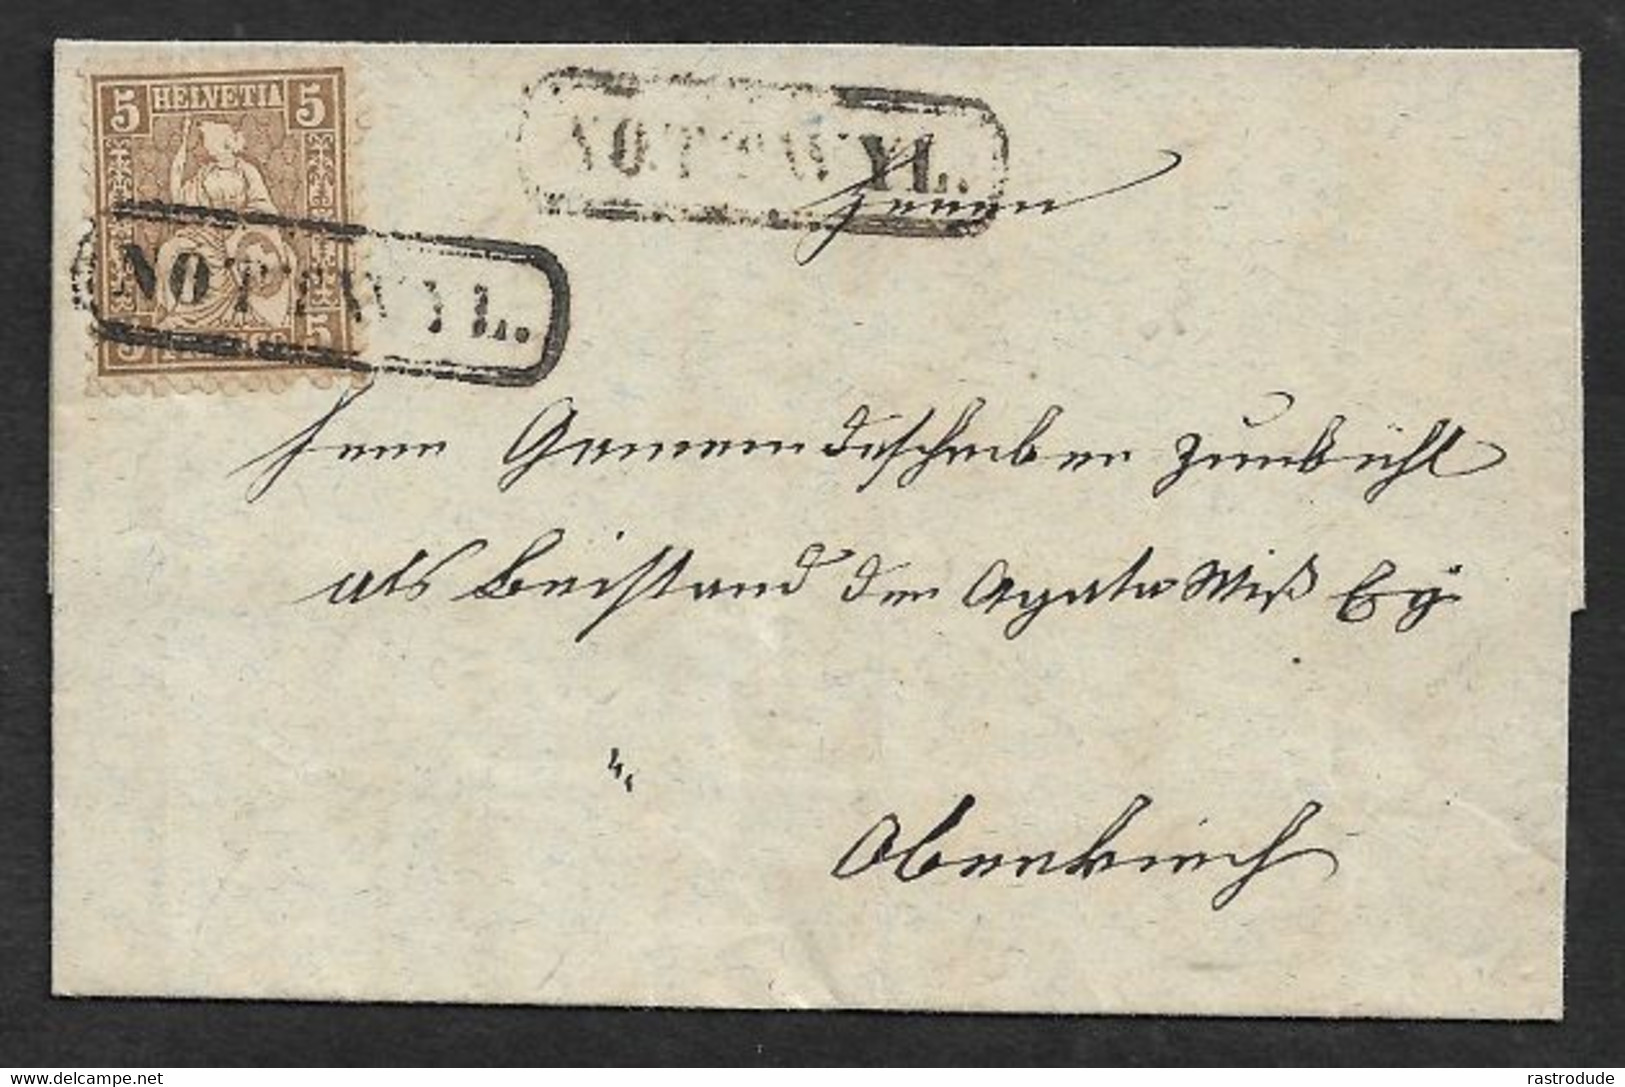 5 HELVETIA 5
NOTTWYL.
NOTTWYL.
Herrn
Herr Gemeindeschreiber Zumbühl
als Beistand der Agatha Wiß
Oberkirch
delcampe.net
rastrodude